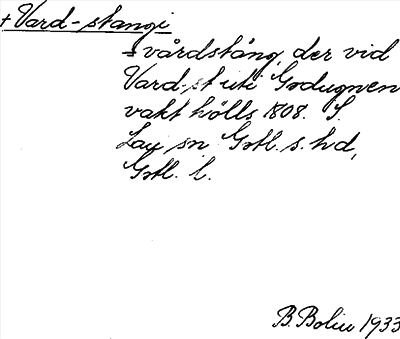 + Vard-stangi
± vårdstång, der vid
Vard-st uti Godugnen
vakt hölls 1808. S.
Lau sn Gotl. s. hd,
Gotl. l.
B. Bolin 1933